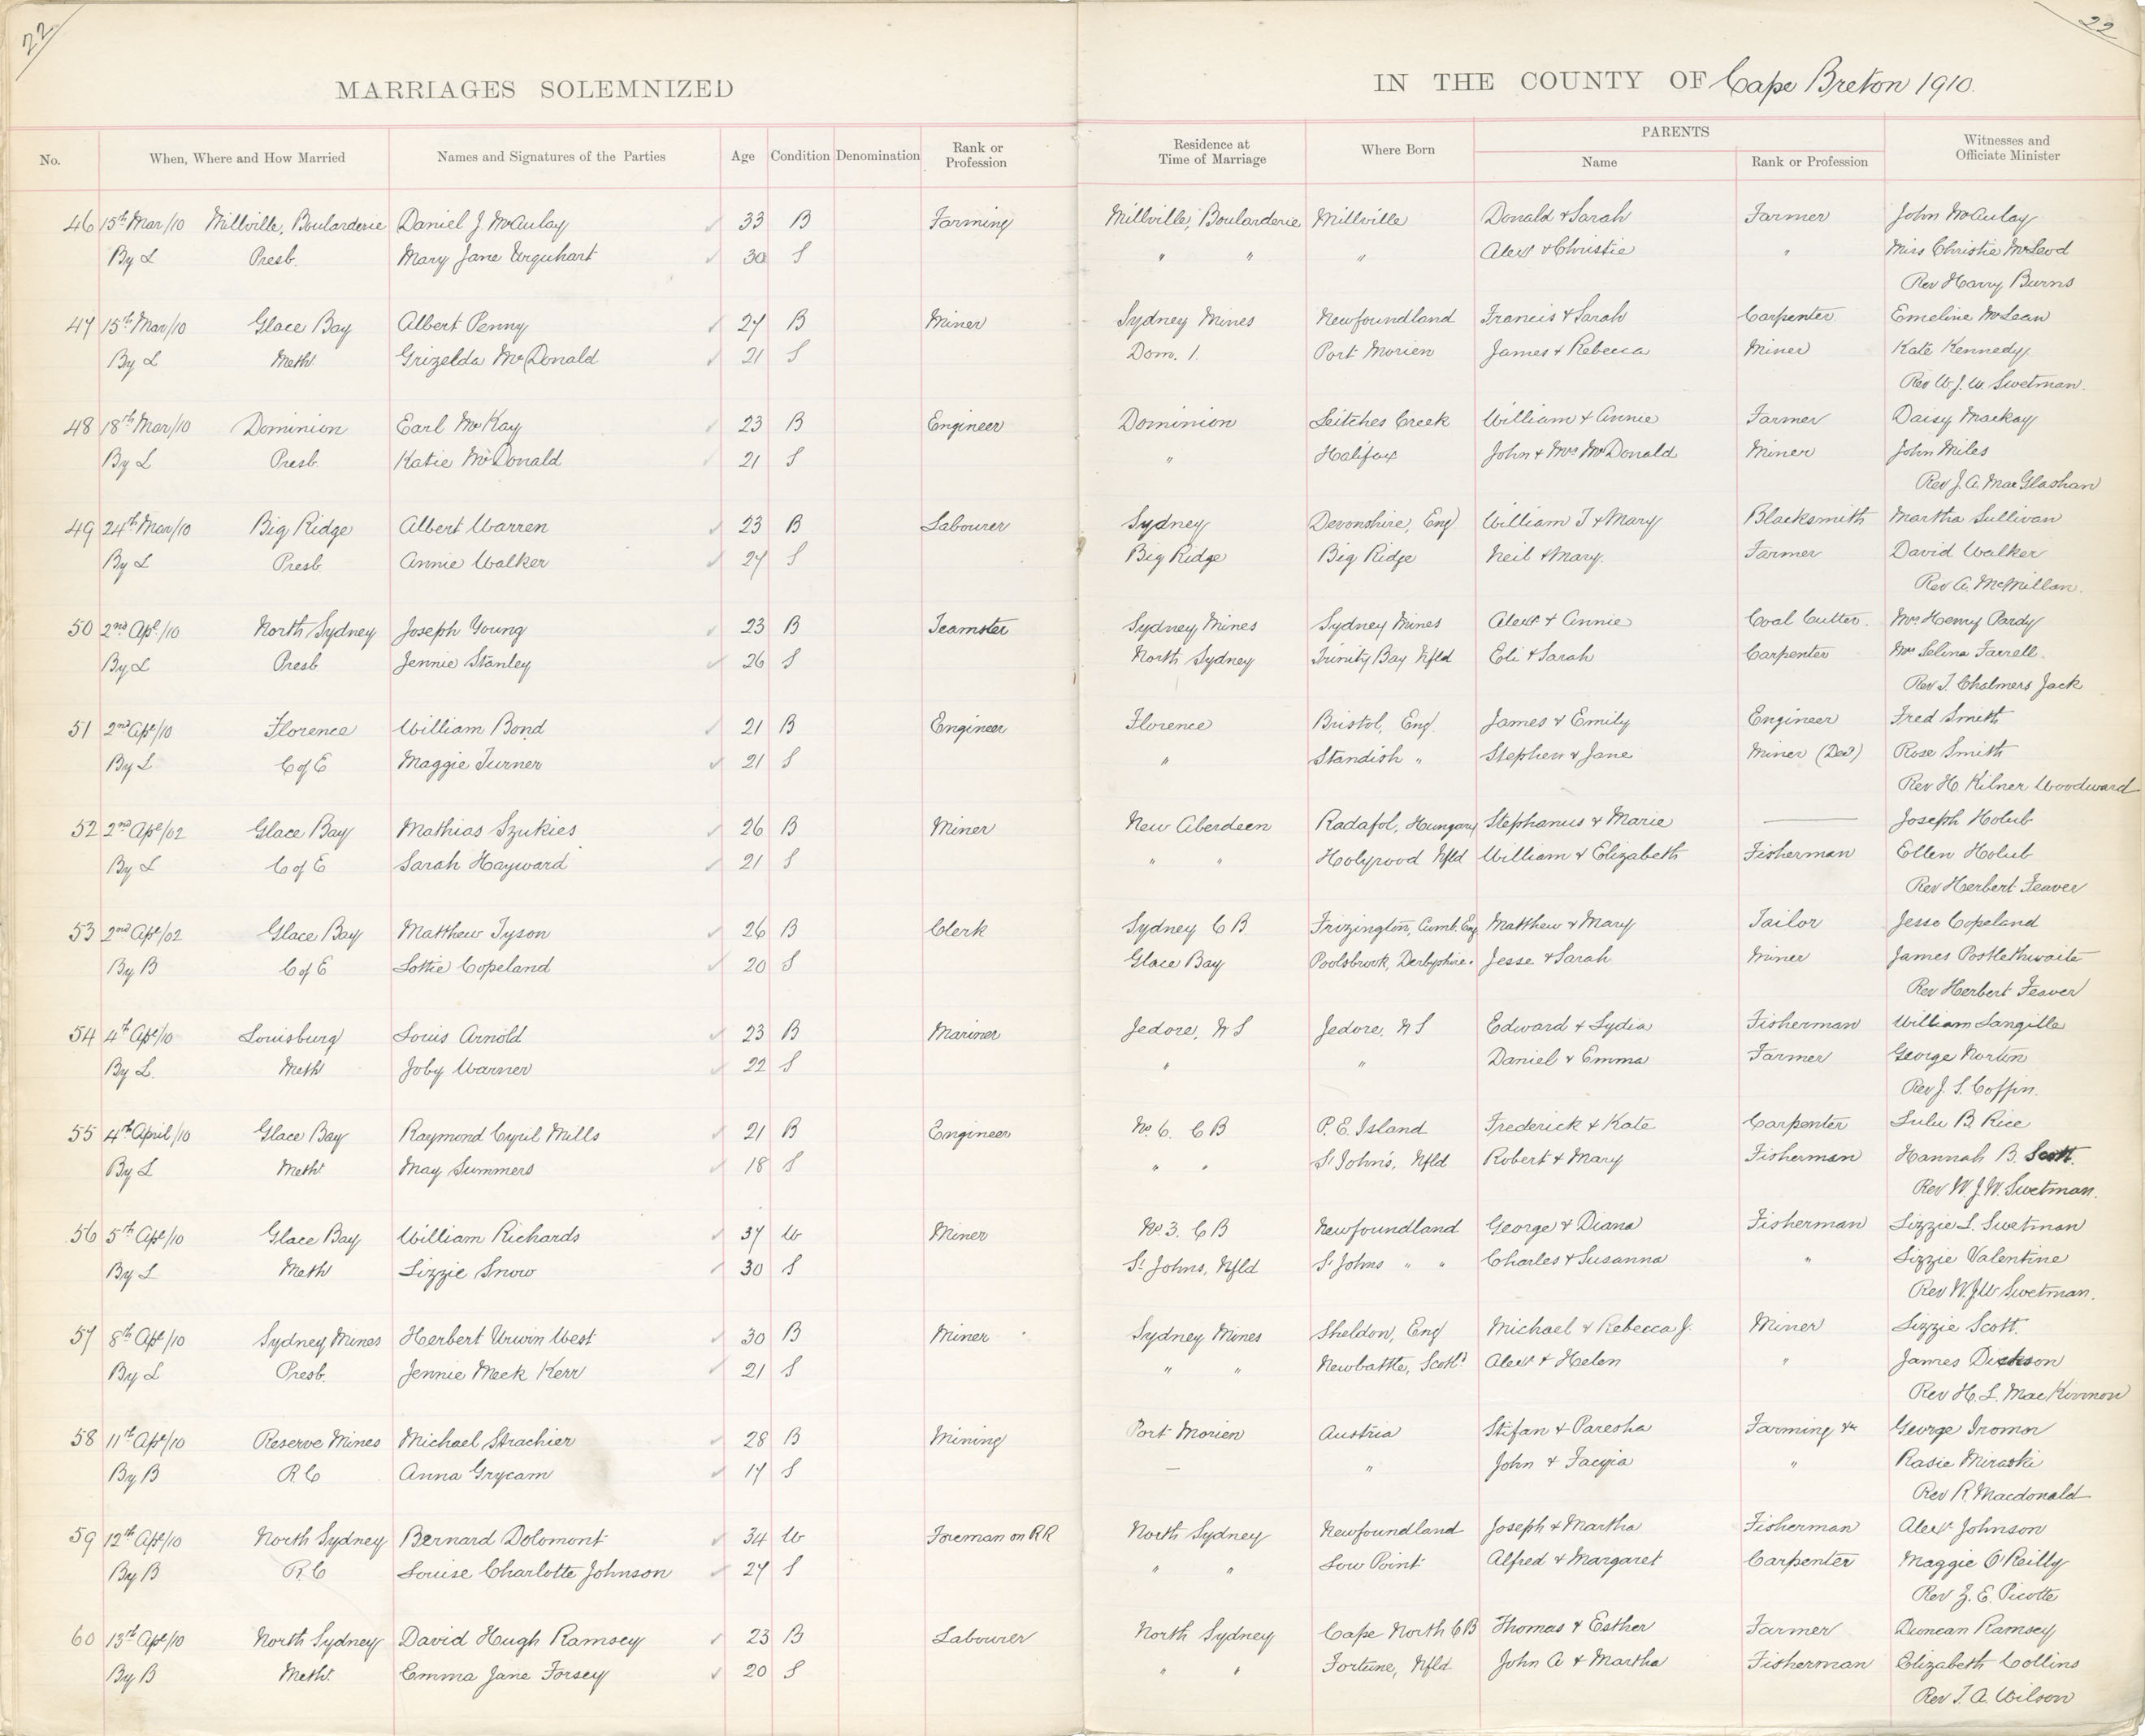 22
22
MARRIAGES SOLEMNIZED
IN THE COUNTY OF Cape Breton 1910.
No. When, Where and How Married Names and Signatures of the Parties Age Condition Denomination Rank or Profession Residence at Time of Marriage Where Born PARENTS Name Rank or Profession Witnesses and Officiate Minister
46 15th Mar/10 Millville, Boularderie Daniel J McAulay 33 B Farming Millville, Boularderie Millville Donald + Sarah Farmer John McAulay
By L Presb. Mary Jane Urquhart 30 S " " " Alexr + Christie " Miss Christie McLeod
Rev Harry Burns
47 15th Mar/10 Glace Bay Albert Penny 27 B Miner Sydney Mines Newfoundland Francis + Sarah Carpenter Emeline McLean
By L Meth. Grizelda McDonald 21 S Dom. 1. Port Morien James + Rebecca Miner Kate Kennedy
Rev W. J. W. Swetman.
48 18th Mar/10 Dominion Earl McKay 23 B Engineer Dominion Leitches Creek William + Annie Farmer Daisy Mackay
By L Presb. Katie McDonald 21 S " Halifax John + Mrs McDonald Miner John Miles
Rev J. A. MacGlashan
49 24th Mar/10 Big Ridge Albert Warren 23 B Labourer Sydney Devonshire, Eng William T + Mary Blacksmith Martha Sullivan
By L Presb Annie Walker 27 S Big Ridge Big Ridge Neil + Mary. Farmer David Walker
Rev A. McMillan.
50 2nd Apl/10 North Sydney Joseph Young 23 B Teamster Sydney Mines Sydney Mines Alexr + Annie Coal Cutter. Mrs Henry Pardy
By L Presb Jennie Stanley 26 S North Sydney Trinity Bay Nfld Eli + Sarah Carpenter Mrs Selina Farrell
Rev T. Chalmers Jack
51 2nd Apl/10 Florence William Bond 21 B Engineer Florence Bristol, Eng. James + Emily Engineer Fred Smith
By L C of E Maggie Turner 21 S " Standish " Stephen + Jane Miner (Decd) Rose Smith
Rev H. Kilner Woodward
52 2nd Apl/02 Glace Bay Mathias Szukies 26 B Miner New Aberdeen Radafol, Hungary Stephanus + Marie Joseph Holub
By L C of E Sarah Hayward 21 S " " Holyrood Nfld William + Elizabeth Fisherman Ellen Holub
Rev Herbert Feaver
53 2nd Apl/02 Glace Bay Matthew Tyson 26 B Clerk Sydney C B Frizington, Cumb. Eng Matthew + Mary Tailor Jesse Copeland
By B C of E Lottie Copeland 20 S Glace Bay Poolsbrook, Derbyshire. Jesse + Sarah Miner James Postlethwaite
Rev Herbert Feaver
54 4th Apl/10 Louisburg Louis Arnold 23 B Mariner Jedore, N S Jedore, N S Edward + Lydia Fisherman William Langille
By L. Meth Joby Warner 22 S " " Daniel + Emma Farmer George Norton
Rev J. S. Coffin.
55 4th April/10 Glace Bay Raymond Cyril Mills 21 B Engineer No 6. C B P. E. Island Frederick + Kate Carpenter Lulu B. Rice
By L Meth. May Summers 18 S " " St John's, Nfld Robert + Mary Fisherman Hannah B. Scott.
Rev W. J. W. Swetman.
56 5th Apl/10 Glace Bay William Richards 37 W Miner No. 3. C B Newfoundland George + Diana Fisherman Lizzie L. Swetman
By L Meth Lizzie Snow 30 S St Johns, Nfld St Johns " " Charles + Susanna " Lizzie Valentine
Rev W. J W Swetman.
57 8th Apl/10 Sydney Mines Herbert Urwin West 30 B Miner Sydney Mines Sheldon, Eng Michael + Rebecca J. Miner Lizzie Scott.
By L Presb. Jennie Meek Kerr 21 S " " Newbattle, Scotld Alexr + Helen " James Dickson
Rev H. L. MacKinnon
58 11th Apl/10 Reserve Mines Michael Strachier 28 B Mining Port Morien Austria Stifan + Paresha Farming George Iromor
By B R C Anna Grycam 17 S — " John + " Rasie Miraski
Rev R. Macdonald
59 12th Apl/10 North Sydney Bernard Dolomont 34 W Foreman on RR North Sydney Newfoundland Joseph + Martha Fisherman Alexr Johnson
By B R. C Louise Charlotte Johnson 27 S " " Low Point Alfred + Margaret Carpenter Maggie O'Reilly
Rev Z. E. Picotte
60 13th Apl/10 North Sydney David Hugh Ramsey 23 B Labourer North Sydney Cape North C B Thomas + Esther Farmer Duncan Ramsey
By B Meth. Emma Jane Forsey 20 S " " Fortune, Nfld John A + Martha Fisherman Elizabeth Collins
Rev T. A. Wilson